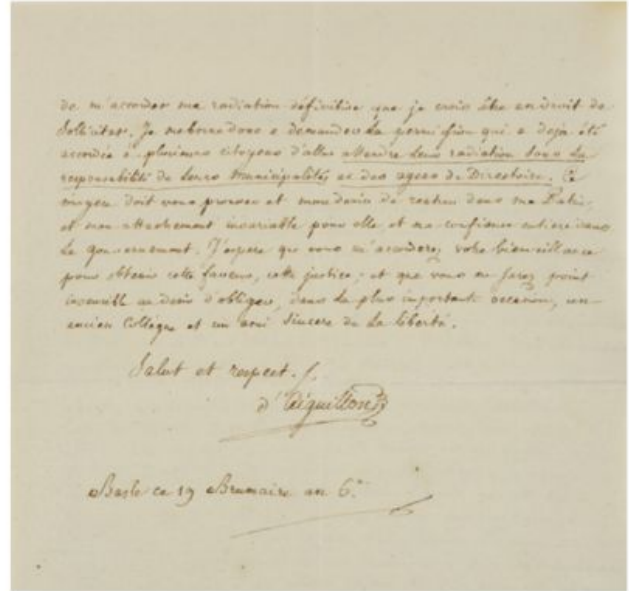 de m'accorder ma radiation définitive que je crois être en droit de
solliciter. Je me borne donc à demander la permission qui a déjà été
accordée à plusieurs citoyens d'aller attendre leur radiation sous la
responsabilité de leurs Municipalités et des agens du Directoire. Ce
moyen doit vous prouver et mon désir de rentrer dans ma Patrie,
et mon attachement invariable pour elle et ma confiance entiere dans
le gouvernement. J'espere que vous m'accorderez votre bienveillance
pour obtenir cette faveur, cette justice; et que vous ne serez point
insensible au désir d'obliger, dans la plus importante occasion, un
ancien Collègue et un ami sincere de la liberté.
Salut et respect.
d'Aiguillon
Basle ce 19 Brumaire an 6.e